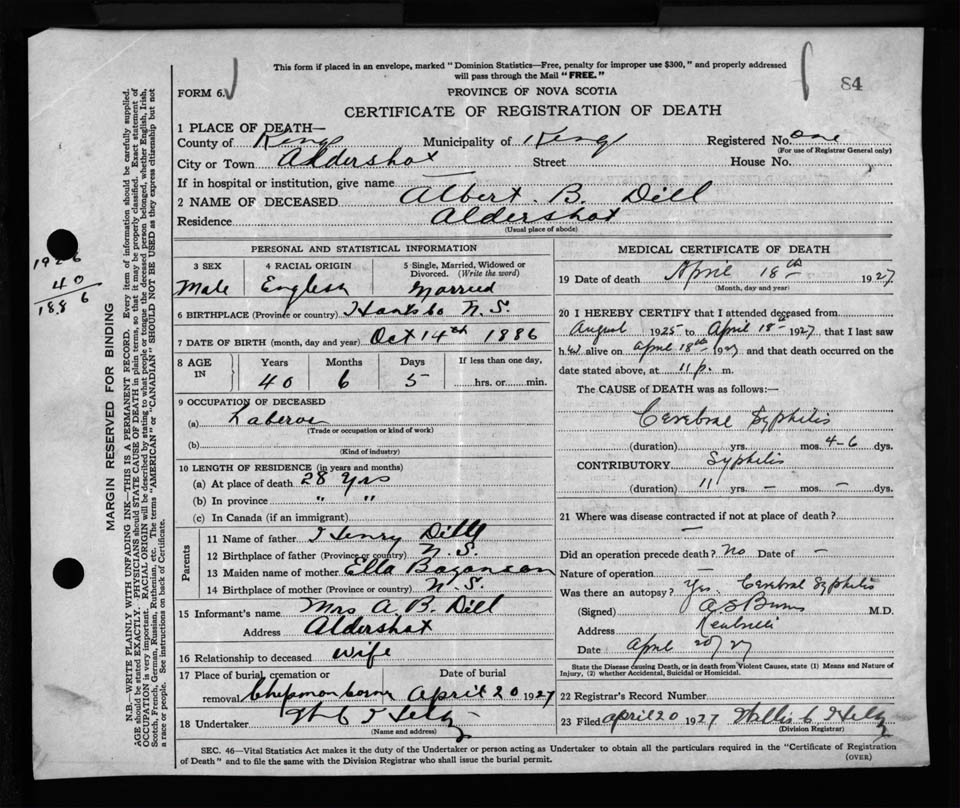 This form if placed in an envelope, marked "Dominion Statistics—Free, penalty for improper use $300," and properly addressed
will pass through the Mail "FREE."
84
FORM 6.
PROVINCE OF NOVA SCOTIA
CERTIFICATE OF REGISTRATION OF DEATH
1 PLACE OF DEATH—
County of Kings Municipality of Kings Registered No. one
(For use of Registrar General only)
City or Town Aldershot Street House No.
If in hospital or institution, give name —
2 NAME OF DECEASED Albert B. Dill
Residence Aldershot
(Usual place of abode)
PERSONAL AND STATISTICAL INFORMATION
3 SEX 4 RACIAL ORIGIN 5 Single, Married, Widowed or Divorced. (Write the word)
Male English Married
6 BIRTHPLACE (Province or country) N.S.
7 DATE OF BIRTH (month, day and year) Oct 14th 1886
8 AGE IN Years Months Days If less than one day,
40 6 5 hrs. or min.
9 OCCUPATION OF DECEASED
(a)
(Trade or occupation or kind of work)
(b)
(Kind of industry)
10 LENGTH OF RESIDENCE (in years and months)
(a) At place of death 28 yrs
(b) In province " "
(c) In Canada (if an immigrant)
Parents
11 Name of father Henry Dill
12 Birthplace of father (Province or country) N.S.
13 Maiden name of mother Ella
14 Birthplace of mother (Province or country) N.S.
15 Informant's name Mrs A. B. Dill
Address Aldershot
16 Relationship to deceased wife
17 Place of burial, cremation or removal Date of burial
April 20 1927
18 Undertaker
(Name and address)
MEDICAL CERTIFICATE OF DEATH
19 Date of death April 18th 1927
(Month, day and year)
20 I HEREBY CERTIFY that I attended deceased from
August 1925 to April 18th 1927, that I last saw
h im alive on April 18th 1927 and that death occurred on the
date stated above, at 11 p. m.
The CAUSE of DEATH was as follows:—
Cerebral Syphilis
(duration) yrs. mos. 4-6 dys.
CONTRIBUTORY Syphilis
(duration) 11 yrs. — mos. — dys.
21 Where was disease contracted if not at place of death?
—
Did an operation precede death? No Date of —
Nature of operation —
Was there an autopsy? Yes. Cerebral Syphilis
(Signed) M.D.
Address
Date April 20/27
State the Disease causing Death, or in death from Violent Causes, state (1) Means and Nature of Injury, (2) whether Accidental, Suicidal or Homicidal.
22 Registrar's Record Number
23 Filed April 20 1927 Willis C
(Division Registrar)
SEC. 46—Vital Statistics Act makes it the duty of the Undertaker or person acting as Undertaker to obtain all the particulars required in the "Certificate of Registration
of Death" and to file the same with the Division Registrar who shall issue the burial permit.
(OVER)
MARGIN RESERVED FOR BINDING
N.B.—WRITE PLAINLY WITH UNFADING INK—THIS IS A PERMANENT RECORD. Every item of information should be carefully supplied.
AGE should be stated EXACTLY. PHYSICIANS should STATE CAUSE OF DEATH in plain terms, so that it may be properly classified. Exact statement of
OCCUPATION is very important. RACIAL ORIGIN will be described by stating to what people or tongue the deceased person belonged, whether English, Irish,
Scotch, French, German, Russian, Ruthenian, etc. The terms "AMERICAN" or "CANADIAN" SHOULD NOT BE USED as they express citizenship but not
a race or people. See instructions on back of Certificate.
1926
40
1886